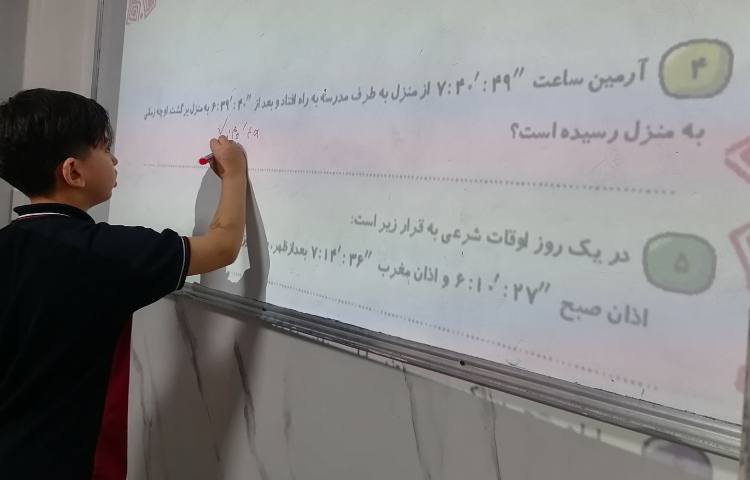 ۴ آرمین ساعت ۷:۴۰′:۴۹″ از منزل به طرف مدرسه به راه افتاد و بعد از ۶:۳۹′:۴۰″ به منزل برگشت. او چه زمانی
به منزل رسیده است؟
۵ در یک روز اوقات شرعی به قرار زیر است:
اذان صبح ۶:۱۰′:۲۷″ و اذان مغرب ۷:۱۴′:۳۶″ بعدازظهر.